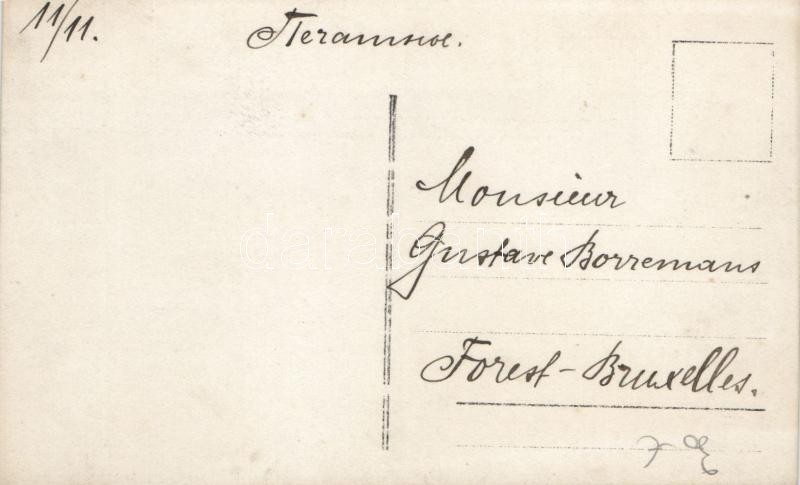 11/11.
Печатное.
Monsieur
Gustave Borremans
Forest-Bruxelles.